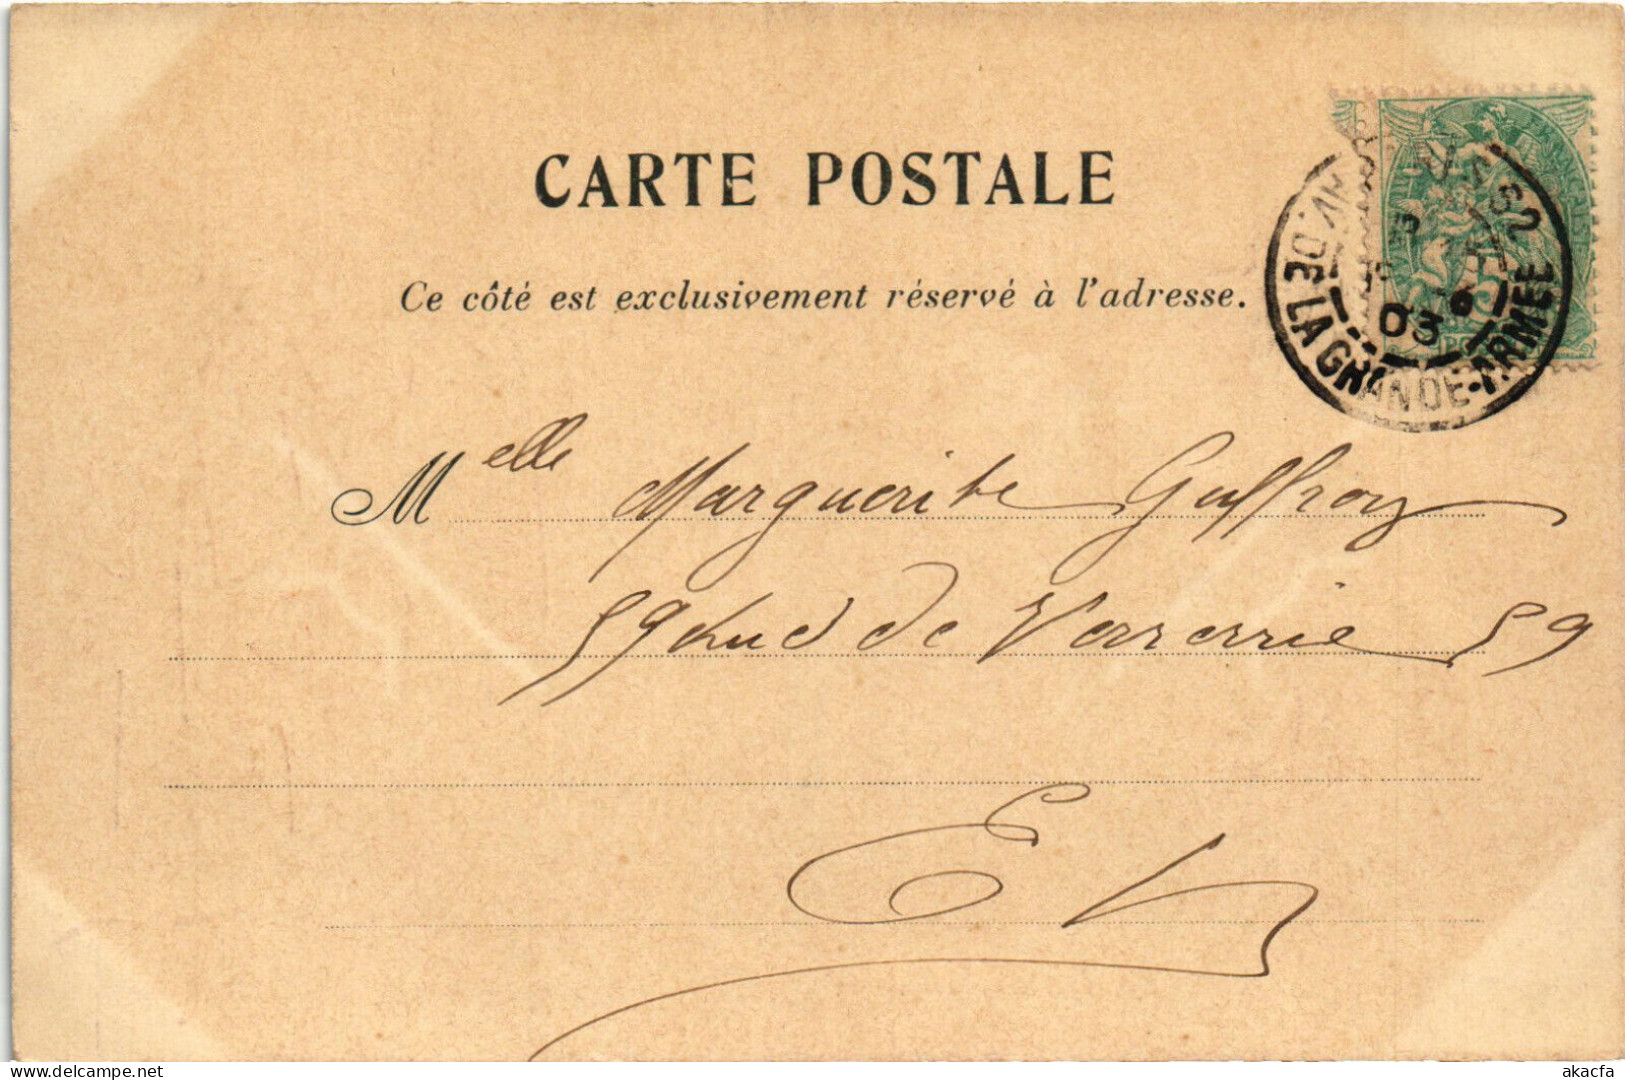 CARTE POSTALE
Ce côté est exclusivement réservé à l'adresse.
AV. DE LA GRANDE-ARMEE
03
5
M elle Marguerite Guffroy
59 Rue de Verrerie 59
EV
akacfa